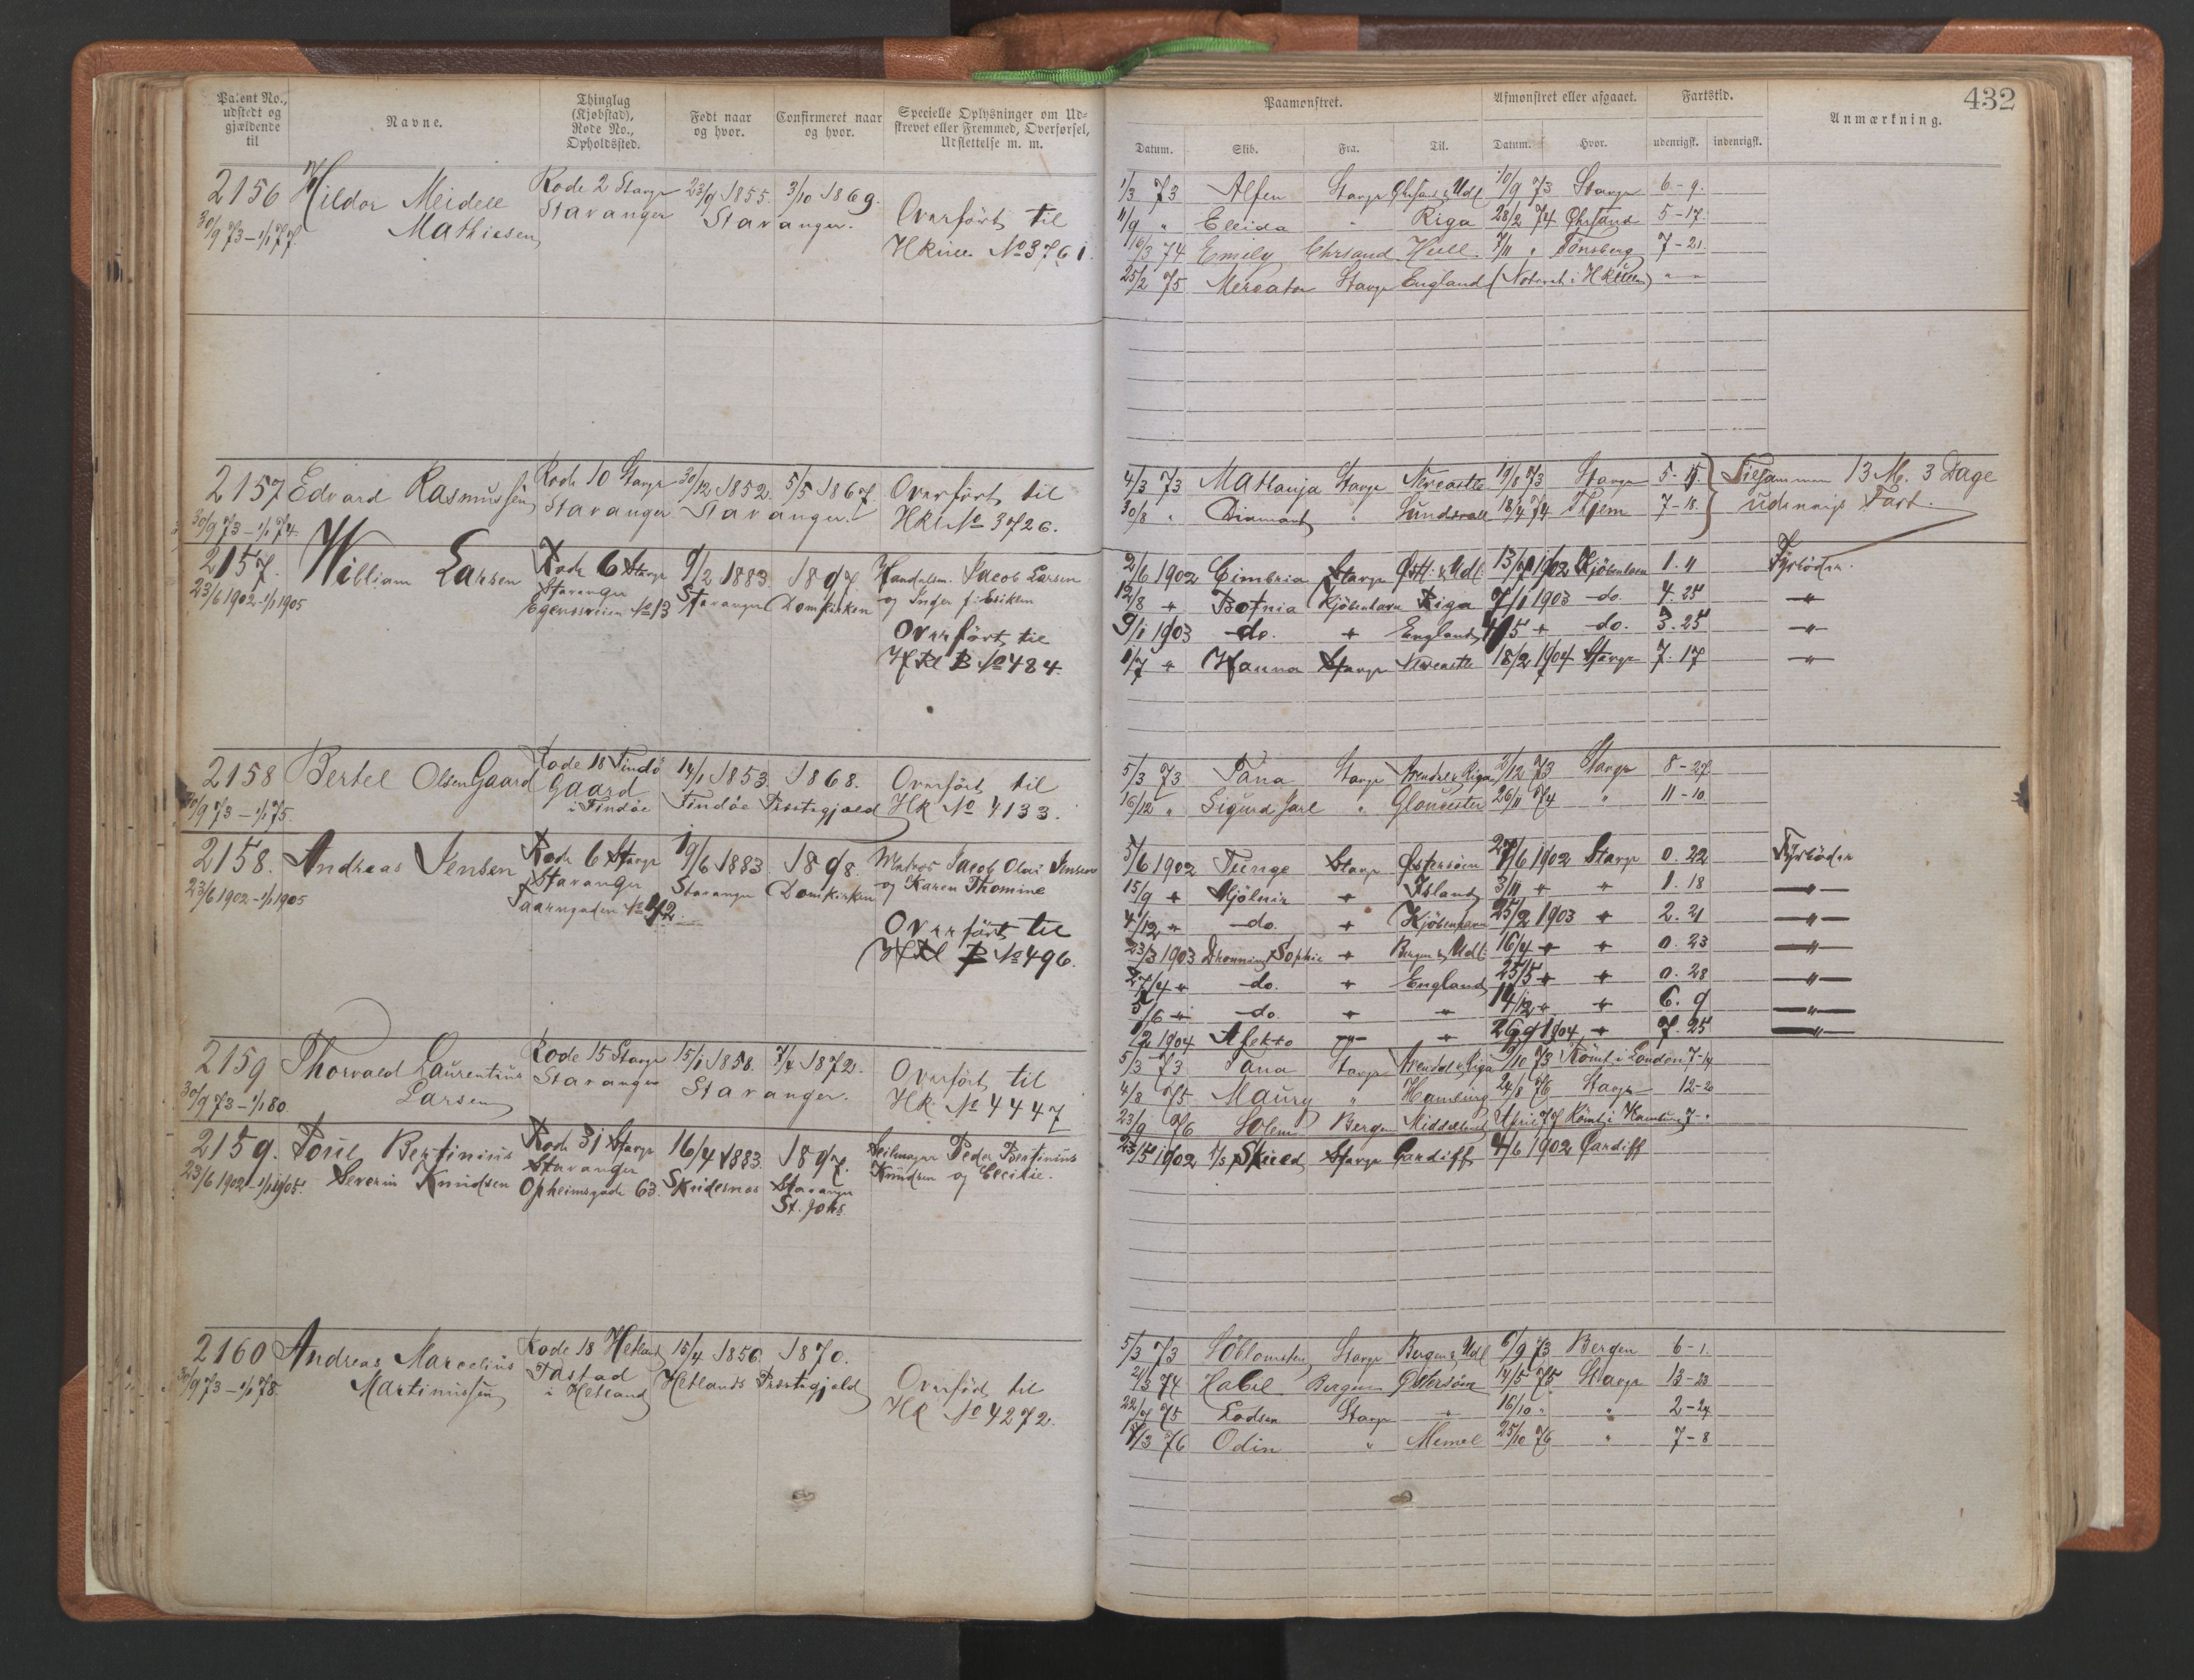 Patent No.,
udstedt og
gjældende
til
Navne.
Thinglag
(Kjøbstad),
Rode No.,
Opholdssted.
Født naar
og hvor.
Confirmeret naar
og hvor.
Specielle Oplysninger om Ud-
skrevet eller Fremmed, Overførsel,
Udslettelse m. m.
Paamønstret.
Afmønstret eller afgaaet.
Fartstid.
Anmærkning.
432
Datum.
Skib.
Fra.
Til.
Datum.
Hvor.
udenrigsk.
indenrigsk.
2156
30/9 73 - 1/1 77.
Hildor Meidell
Mathiesen
Rode 2 Stavgr
Stavanger
23/9 1855. 3/10 1869.
Stavanger.
Overført til
Hkull No 3761.
1/3 73 Alfen Stavgr Chrsand & Udl 10/9 73 Stavgr 6-9.
11/9 " Elleida " Riga 28/2 74 Chrsand 5-17.
16/3 74 Emily Chrsand Hull. 7/11 " Tönsberg 7-21.
25/2 75 Mercator Stavgr England (Noteret i Hkullen) " "
2157
30/9 73 - 1/1 74.
Edvard Rasmussen
Rode 10 Stavgr
Stavanger
30/12 1852. 5/5 1867.
Stavanger.
Overført til
Hkl No 3726.
4/3 73 Mathanja Stavgr Newcastle 19/8 73 Stavgr 5-15.
30/8 " Diamant " Sundsvall 18/4 74 Hjem 7-18.
Tilsammen 13 M. 3 Dage
udenrigs Fart.
2157.
23/6 1902 - 1/1 1905
William Larsen
Rode 6 Stavgr
Stavanger
Egenesveien No 13
9/12 1883
Stavanger
1897
Domkirken
Handelsm. Jacob Larsen
og Inger f. Eriksen
Overført til
Hkl B No 484.
2/6 1902 Cimbria Stavgr Østl. & Udl. 13/7 1902 Kjöbenhavn 1. 11 Fyrböder.
12/8 " Botnia Kjöbenhavn Riga 7/1 1903 do. 4. 25 "
9/1 1903 do. " England 4/5 " do. 3. 25 "
1/7 " Hanna Stavgr Newcastle 18/2 1904 Stavgr 7. 17 "
2158
30/9 73 - 1/1 75.
Bertel Olsen Gaard
Rode 18 Findö
Gaard
i Findöe
14/1 1853. 1868.
Findöe Præstegjæld
Overført til
Hk No 4133.
5/3 73 Tana Stavgr Arendal & Riga 2/12 73 Stavgr 8-27
16/12 " Sigurd Jarl " Gloucester 26/11 74 " 11-10
2158.
23/6 1902 - 1/1 1905
Andreas Jensen
Rode 6 Stavgr
Stavanger
Taarngaden No 42.
19/6 1883
Stavanger
1898.
Domkirken
Matros Jacob Olai Jensen
og Karen Thomine
Overført til
Hkl B No 496.
5/6 1902 Tunge Stavgr Østersöen 27/6 1902 Stavgr 0. 22 Fyrböder
15/9 " Mjölnir " Island 3/11 " " 1. 18 "
4/12 " do. " Kjöbenhavn 25/2 1903 " 2. 21 "
23/3 1903 Dronning Sophie " Bergen & Udl. 16/4 " " 0. 23 "
27/4 " do. " England 25/5 " " 0. 28 "
5/6 " do. " " 14/12 " " 6. 9 "
1/2 1904 Afekto " " 26/9 1904 " 7. 25 "
2159
30/9 73 - 1/1 80
Thorvald Laurentius
Larsen
Rode 15 Stavgr
Stavanger
15/1 1858. 7/4 1872.
Stavanger.
Overført til
Hk No 4447
5/3 73 Tana Stavgr Arendal & Riga 19/10 73 Römt i London 7-14
4/8 75 Maury " Hamburg 24/8 76 Stavgr 12-20
23/9 76 Solem Bergen Middelhavet April 77 Römt i Hamburg 7-.
2159.
23/6 1902 - 1/1 1905.
Poul Bertinius
Severin Knudsen
Rode 31 Stavgr
Stavanger
Opheimsgade 63.
16/4 1883.
Skudesnæs
1897.
Stavanger
St. Johs.
Seilmager Peder Bertinius
Knudsen og Cecilie.
23/5 1902 S/S Skuld Stavgr Cardiff 4/6 1902 Cardiff
2160
30/9 73 - 1/1 78.
Andreas Marcelius
Martinussen
Rode 18 Hetland
Tastad
i Hetland
15/4 1856. 1870.
Hetlands Præstegjæld
Overført til
Hk No 4272.
5/3 73 Söblomsten Stavgr Bergen & Udl 6/9 73 Bergen 6-1.
21/3 74 Habil Bergen Østersöen 14/5 75 Stavgr 13-23
22/7 75 Lodsen Stavgr " 16/10 " " 2-24
17/3 76 Odin " Memel 25/10 76 " 7-8